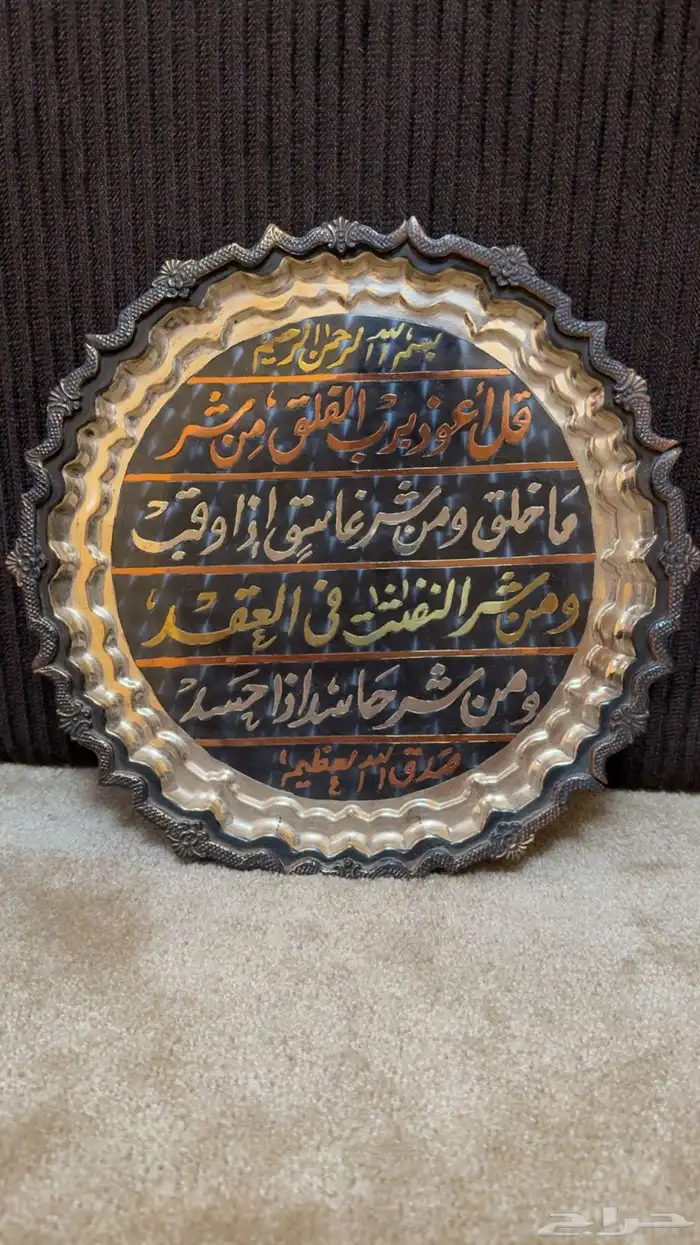 بسم الله الرحمن الرحيم
قل أعوذ برب الفلق من شر
ما خلق ومن شر غاسق إذا وقب
ومن شر النفثت في العقد
ومن شر حاسد اذا حسد
صدق الله العظيم
حراج